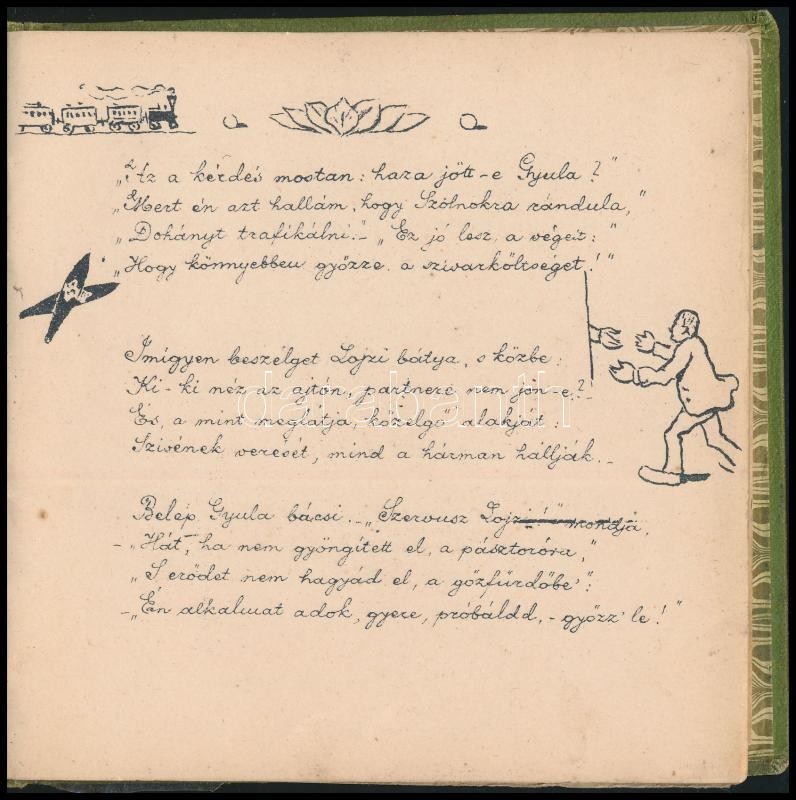 „Az a kérdés mostan: haza jött-e Gyula?"
„Mert én azt hallám, hogy Szolnokra rándula,"
„Dohányt trafikálni.-" „Ez jó lesz, a végeit:"
„Hogy könnyebben győzze a szivarköltséget!"
Imigyen beszélget Lojzi bátya, s közbe:
Ki-ki néz az ajtón, partnere nem jön-e?
És, a mint meglátja, közelgő alakjait:
Szivének verését, mind a hárman hallják.-
Belép Gyula bácsi.- „Szervusz Lojzi!" mondja,
-„Hát, ha nem gyöngített el, a pásztoróra,"
„S erődet nem hagyád el, a gőzfürdőbe":
-„Én alkalmat adok, gyere, próbáldd,- győzz' le!"
databanth